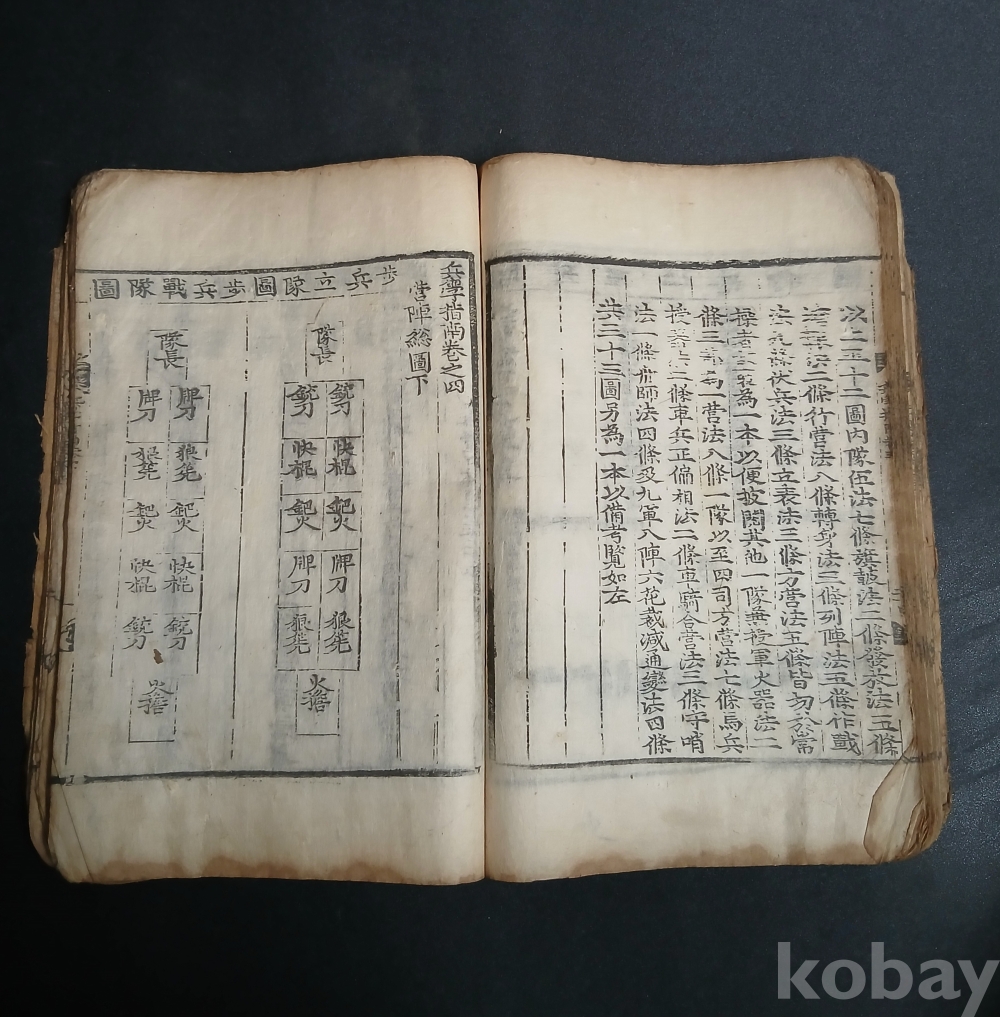 以上五十二圖內隊伍法七條旗鼓法二條發放法五條
法二條行營法八條轉身法三條列陣法五條作戰
法九條伏兵法三條立表法三條方營法五條皆切於常
操者 爲一本以便披閱其他一隊無種軍火器法二
條三 爲一營法八條一隊以至四司方營法七條馬兵
法二條車兵正偏相法二條車騎合營法三條守哨
法一條 師法四條及九軍八陣六花裁減通變法四條
共三十三圖另為一本以備考覽如左
兵學指南卷之四
營陣総圖下
步兵立隊圖
隊長
銃刀 銃刀
快棍 快棍
鈀火 鈀火
牌刀 牌刀
狼筅 狼筅
火擔
步兵戰隊圖
隊長
牌刀 牌刀
狼筅 狼筅
鈀火 鈀火
快棍 快棍
銃刀 銃刀
火擔
kobay